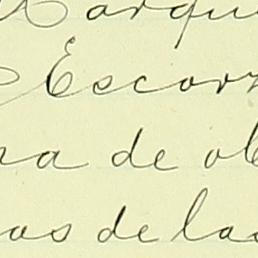 Marqu
Escor
ra de ob
os de las